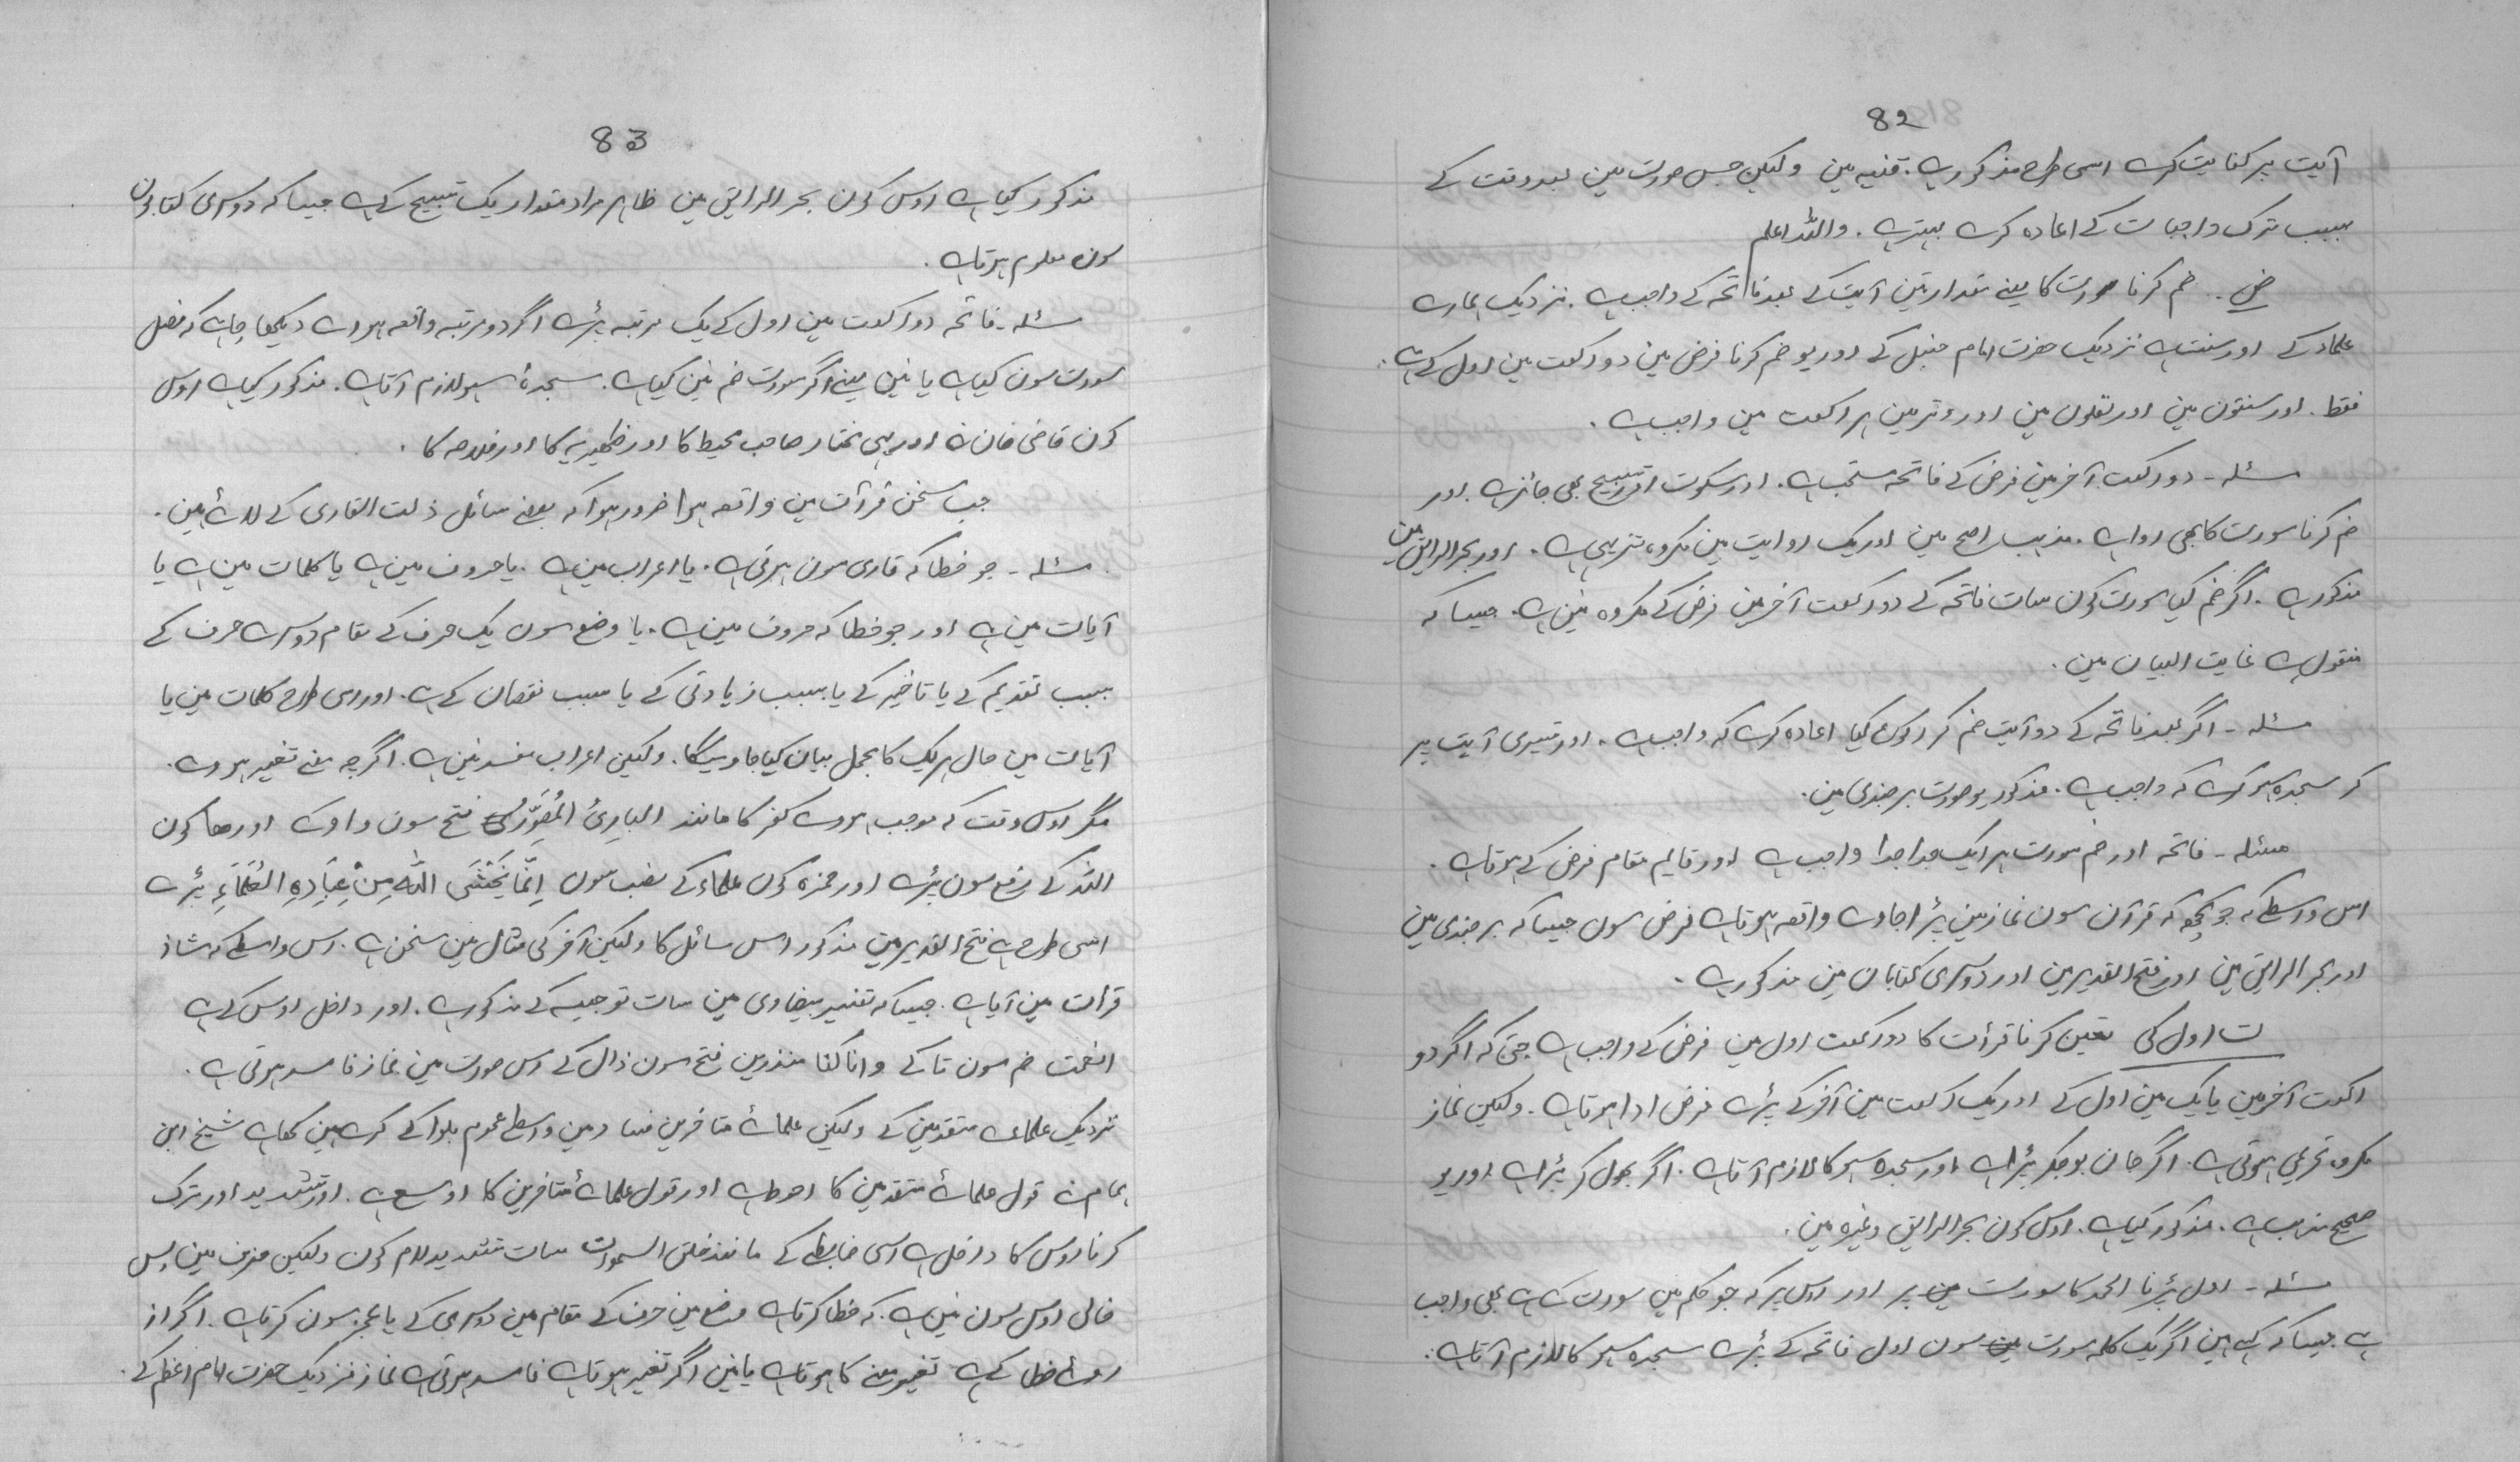 82
آیت پر کفایت کرے اسی طرح مذکور ہے. قنیہ مین ولیکن جس صورت مین بعد وقت کے
بسبب ترک واجبات کے اعادہ کرے بہتر ہے. واللہ اعلم
ض.. ضم کرنا سورت کا یعنے مقدار تین آیت کے بعد فاتحہ کے واجب ہے. نزدیک ہمارے
علماء کے اور سنت ہے نزدیک حضرت امام حنبل کے اور یو ضم کرنا فرض مین دو رکعت مین اول کے ہے.
فقط. اور سنتون مین اور نفلون مین اور وتر مین ہر رکعت مین واجب ہے.
مسئلہ - دو رکعت آخر مین فرض کے فاتحہ مستحب ہے. اور سکوت اور تسبیح بھی جائز ہے. اور
ضم کرنا سورت کا بھی روا ہے. مذہب اصح مین اور یک روایت مین مکروہ تنزیہی ہے. اور بحر الرایق مین
مذکور ہے. اگر ضم کیا سورت کون سات فاتحہ کے دو رکعت آخر مین فرض کے مکروہ نین ہے. جیسا کہ
منقول ہے غایت البیان مین.
مسئلہ - اگر بعد فاتحہ کے دو آیت ضم کر رکوع کیا اعادہ کرے کہ واجب ہے. اور تیسری آیت پر
کر سجدہ سہو کرے کہ واجب ہے. مذکور یو صورت برجندی مین.
مسئلہ - فاتحہ اور ضم سورت ہر ایک جدا جدا واجب ہے اور قایم مقام فرض کے ہوتا ہے.
اس واسطے کہ جو کچھ کہ قرآن سون نماز مین پڑا جاوے واقعہ ہوتا ہے فرض سون جیسا کہ برجندی مین
اور بحر الرایق مین اور فتح القدیر مین اور دوسری کتابان مین مذکور ہے.
ت اول کی تعین کرنا قرأت کا دو رکعت اول مین فرض کے واجب ہے حتی کہ اگر دو
رکعت آخر مین یا یک مین اول کے اور یک رکعت مین آخر کے پڑے فرض ادا ہوتا ہے. ولیکن نماز
مکروہ تحرمی ہوتی ہے. اگر جان بوجکر پڑا ہے اور سجدہ سہو کا لازم آتا ہے. اگر بھول کر پڑا ہے اور یو
صحیح مذہب ہے. مذکور کیا ہے. اوس کون بحر الرایق وغیرہ مین.
مسئلہ - اول پڑنا الحمد کا سورت پر اور اوس پر کہ جو حکم مین سورت کے ہے بھی واجب
ہے جیسا کہ کہے ہین اگر یک کلمہ سورت سون اول فاتحہ کے پڑے سجدہ سہو کا لازم آتا ہے.
83
مذکور کیا ہے اوس کون بحر الرایق مین ظاہر مراد مقدار یک تسبیح کے ہے جیسا کہ دوسری کتابون
سون معلوم ہوتا ہے.
مسئلہ - فاتحہ دو رکعت مین اول کے یک مرتبہ پڑے اگر دو مرتبہ واقعہ ہووے دیکھا چاہے کہ فصل
سورت سون کیا ہے یا نین یعنے اگر سورت ضم نین کیا ہے. سجدۂ سہو لازم آتا ہے. مذکور کیا ہے اوس
کون قاضی خان نے اور یہی مختار صاحب محیط کا اور ظہیریہ کا اور خلاصہ کا.
جب سخن قرآت مین واقعہ ہوا ضرور ہوا کہ بعضے مسائل ذلت القاری کے لاے ہین.
مسئلہ - جو خطا کہ قاری سون ہوتی ہے. یا اعراب مین ہے. یا حروف مین ہے یا کلمات مین ہے یا
آیات مین ہے اور جو خطا کہ حروف مین ہے. یا وضع سون یک حرف کے مقام دوسرے حرف کے
بسبب تقدیم کے یا تاخیر کے یا بسبب زیادتی کے یا سبب نقصان کے ہے. اور اسی طرح کلمات مین یا
آیات مین حال ہر یک کا مجمل بیان کیا جاویگا. ولیکن اعراب مفسد نین ہے. اگرچہ معنے تغیر ہووے.
مگر اوس وقت کہ موجب ہووے کفر کا مانند البارِئُ المُصَوَّرُ کے فتح سون واو کے اور ھا کون
اللہ کے رفع سون پڑے اور ہمزہ کون علماء کے نصب سون اِنَّمَا یَخْشَی اللّٰہُ مِنْ عِبَادِہِ العُلَمَاءَ پڑے
اسی طرح ہے فتح القدیر مین مذکور اس مسائل کا ولیکن آخر کی مثال مین سخن ہے. اس واسطے کہ شاذ
قرات مین آیا ہے. جیسا کہ تفسیر بیضاوی مین سات توجیہ کے مذکور ہے. اور داخل اوس کے ہے
انعمت ضم سون تا کے وانا کنا منذرین فتح سون ذال کے اس صورت مین نماز فاسد ہوتی ہے.
نزدیک علمائے متقدمین کے ولیکن علمائے متاخرین فساد مین واسطے عموم بلوا کے کرے ہین کہا ہے شیخ ابن
ہمام نے قول علمائے متقدمین کا احوط ہے اور قول علمائے متاخرین کا اوسع ہے. اور تشدید اور ترک
کرنا اوس کا داخل ہے اسی ضابطے کے مانند خلق السموات سات تشدید لام کون ولیکن حرف مین بس
خالی اوس سون نین ہے. کہ خطا کرتا ہے وضع مین حرف کے مقام مین دوسری کے یا عجز سون کرتا ہے. اگر از
روئے خطا کے ہے تغیر معنے کا ہوتا ہے یا نین اگر تغیر ہوتا ہے فاسد ہوتی ہے نماز نزدیک حضرت امام اعظم کے.